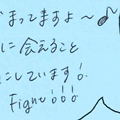 まってますよ〜
に会えること
にしています!
Fight!!!